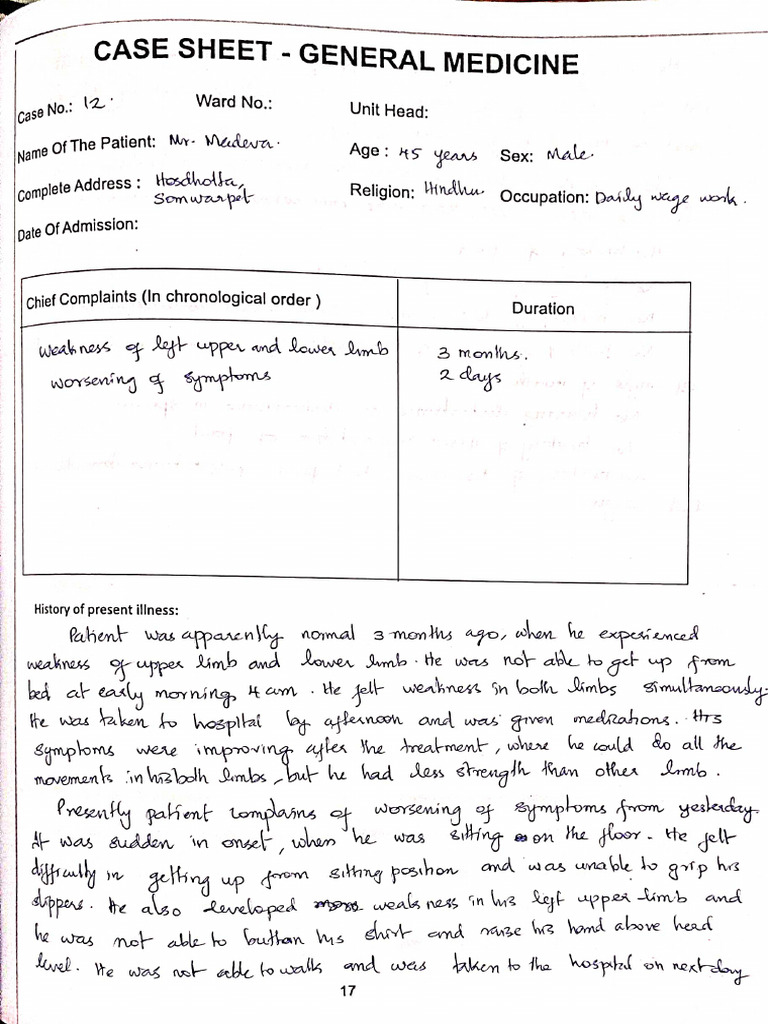 CASE SHEET - GENERAL MEDICINE
Case No.: 12. Ward No.: Unit Head:
Name Of The Patient: Mr. Madeva. Age : 45 years Sex: Male.
Complete Address : Hosdhotta, Religion: Hindhu. Occupation: Daily wage work.
Somwarpet
Date Of Admission:
Chief Complaints (In chronological order ) Duration
weakness of left upper and lower limb 3 months.
worsening of symptoms 2 days
History of present illness:
Patient was apparently normal 3 months ago, when he experienced
weakness of upper limb and lower limb. He was not able to get up from
bed at early morning, 4 am. He felt weakness in both limbs simultaneously.
He was taken to hospital by afternoon and was given medications. His
symptoms were improving after the treatment, where he could do all the
movements in his both limbs, but he had less strength than other limb.
Presently patient complains of worsening of symptoms from yesterday.
It was sudden in onset, when he was sitting on the floor. He felt
difficulty in getting up from sitting position and was unable to grip his
slippers. He also developed weakness in his left upper limb and
he was not able to button his shirt and raise his hand above head
level. He was not able to walk and was taken to the hospital on next day
17